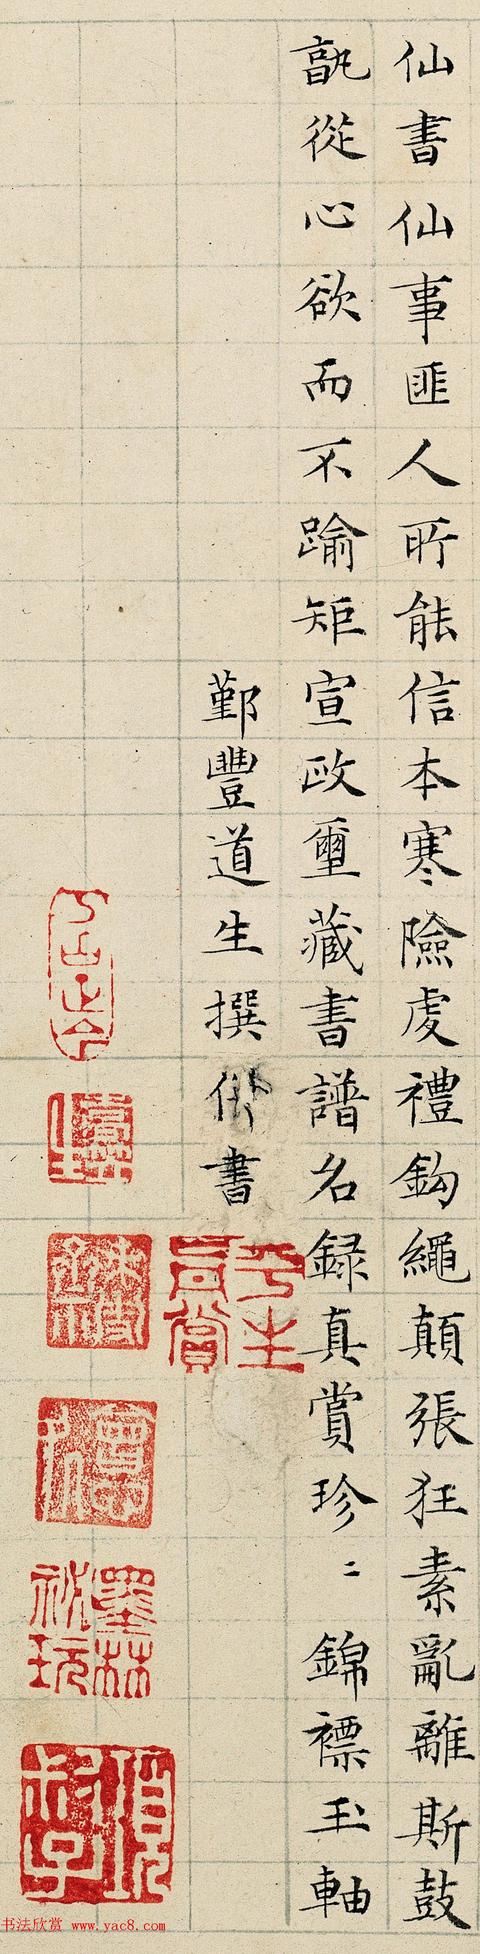 仙書仙事匪人所能信本寒險虔禮鈎繩顛張狂素亂離斯鼓
翫從心欲而不踰矩宣政璽藏書譜名録真賞珍〻錦褾玉軸
鄞豐道生撰併書
平生真賞
墨林祕玩
项子
书法欣赏 www.yac8.com